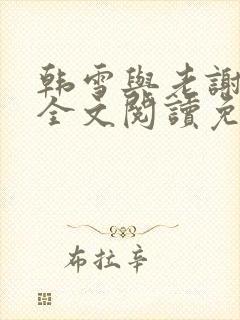 韩雪與老謝
全文閱讀免
布拉辛